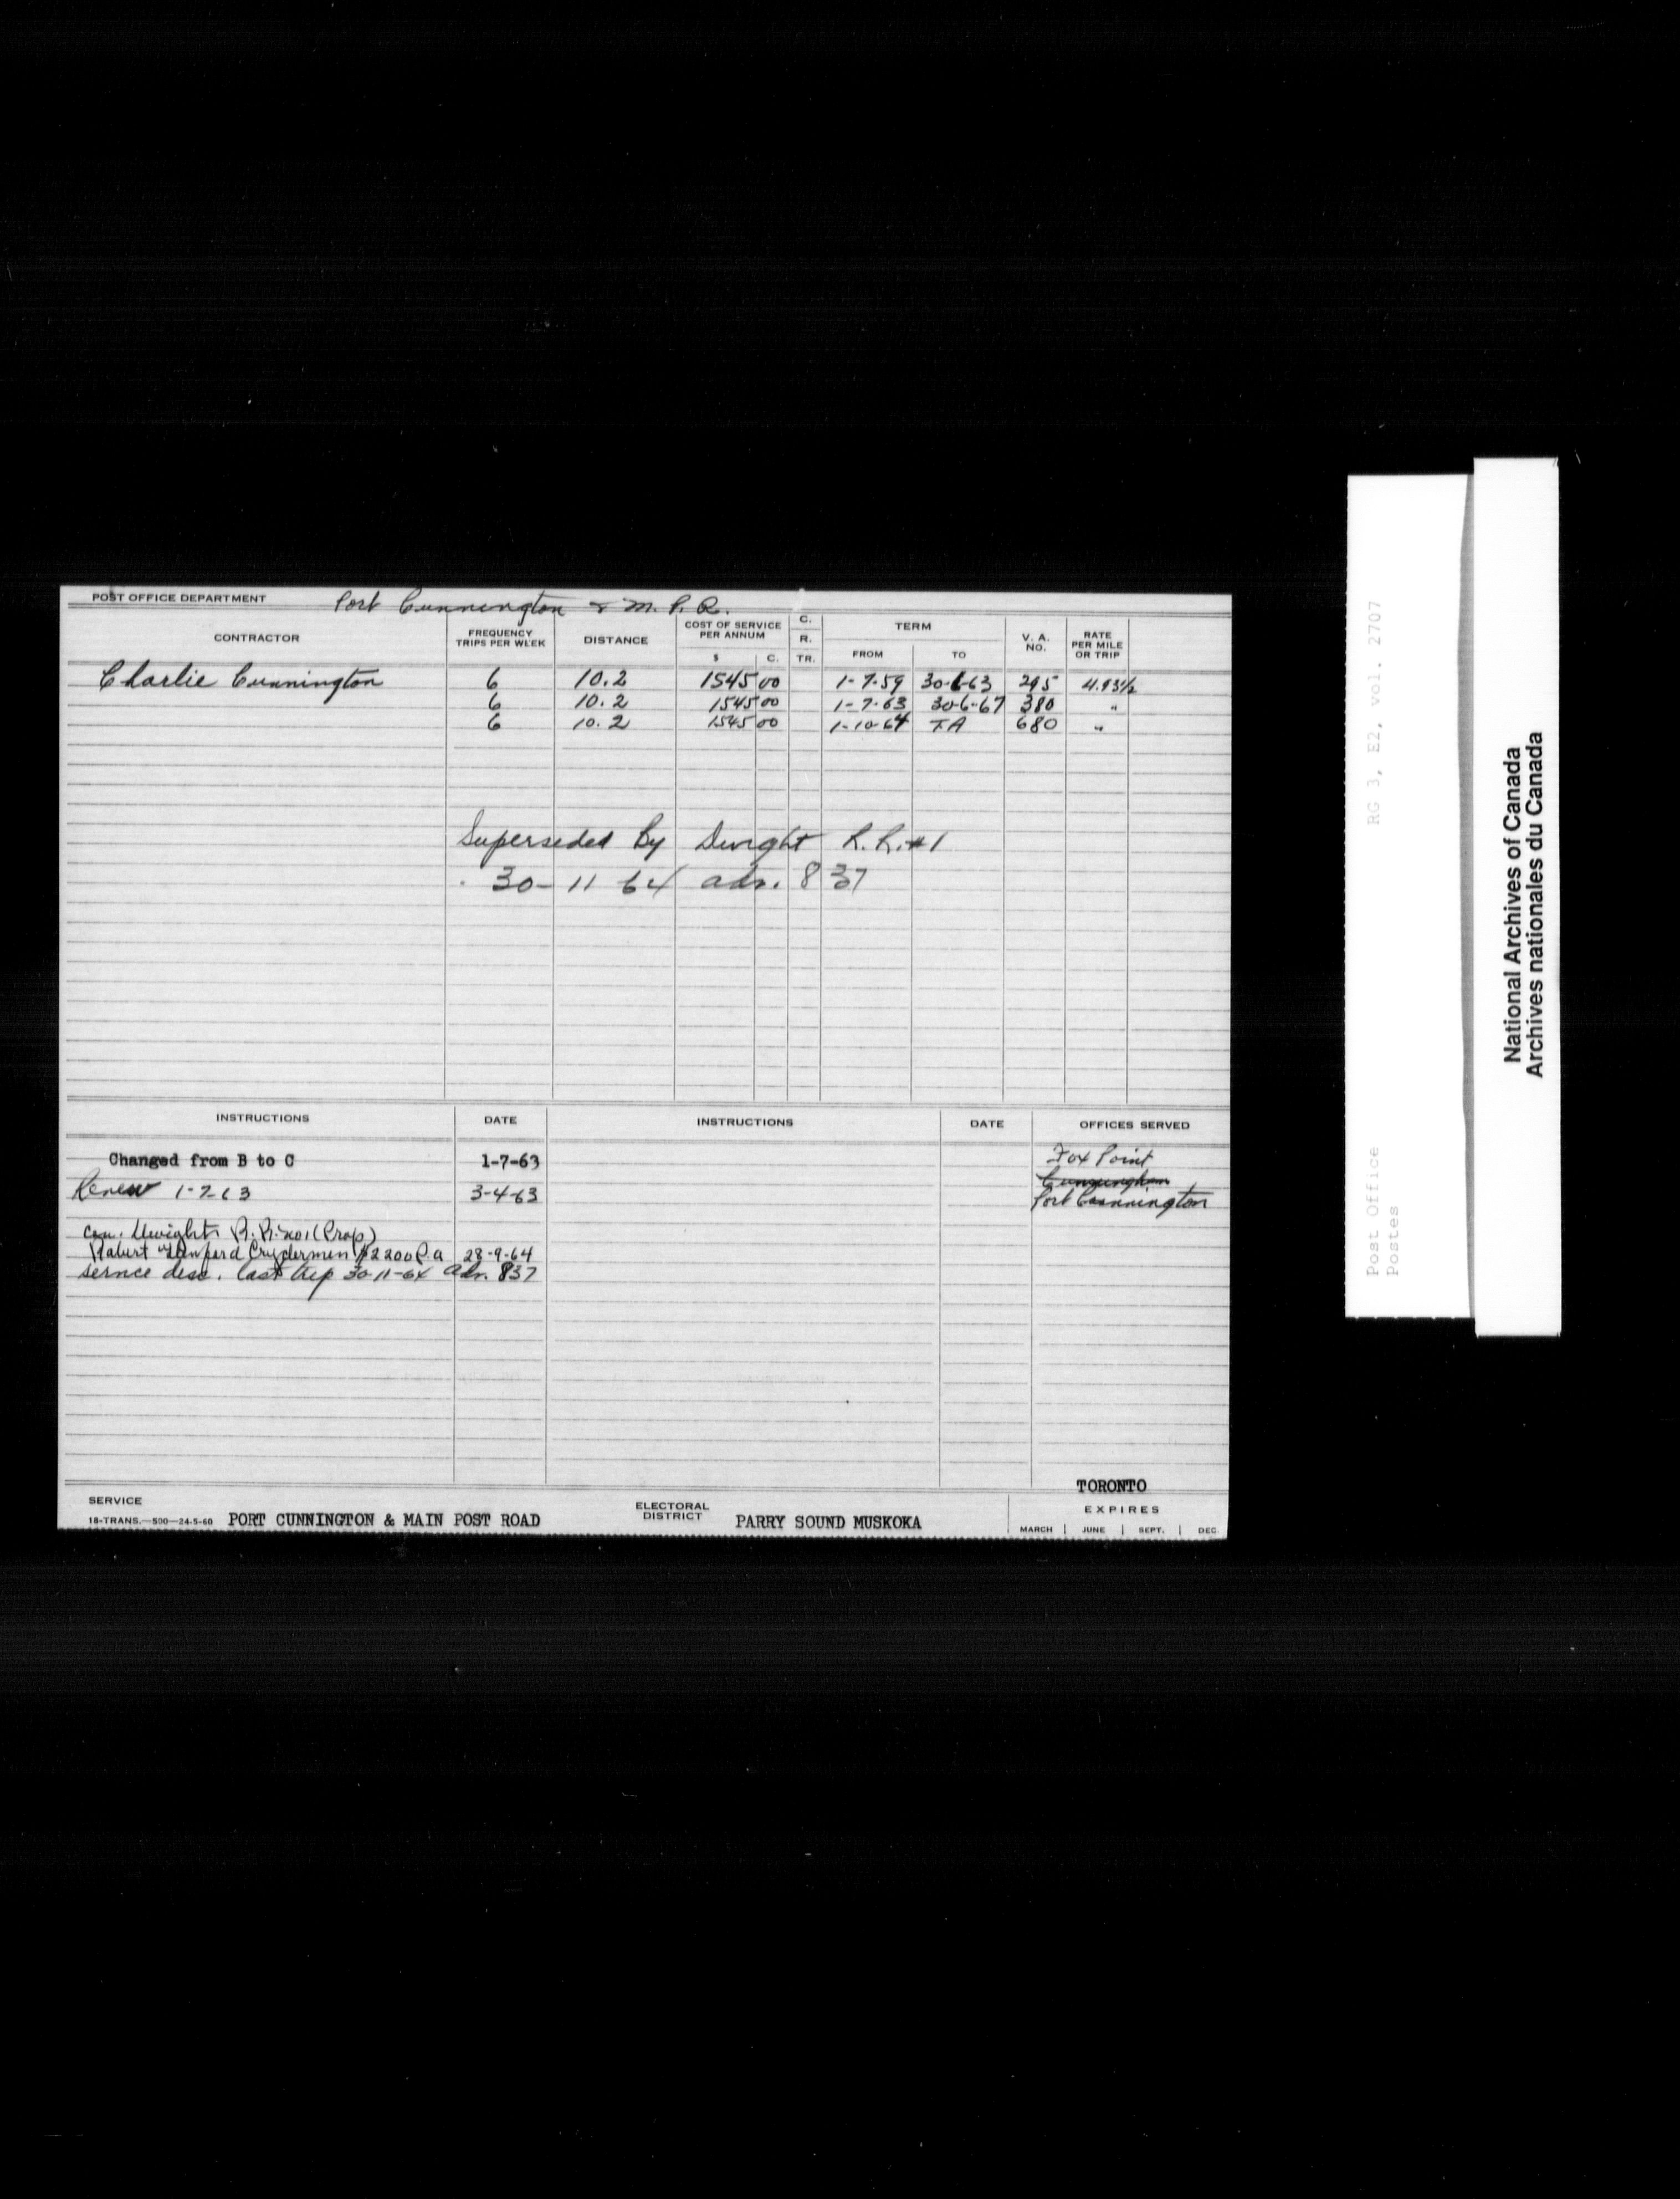 POST OFFICE DEPARTMENT Port Cunnington & M.P.R.
CONTRACTOR FREQUENCY TRIPS PER WEEK DISTANCE COST OF SERVICE PER ANNUM $ C. C. R. TR. TERM FROM TO V. A. NO. RATE PER MILE OR TRIP
Charlie Cunnington 6 10.2 1545 00 1-7-59 30-6-63 295 4.93½
6 10.2 1545 00 1-7-63 30-6-67 380 "
6 10.2 1545 00 1-10-64 T.A 680 "
Superseded By Dwight R.R.#1
30-11 64 adv. 837
INSTRUCTIONS DATE INSTRUCTIONS DATE OFFICES SERVED
Changed from B to C 1-7-63 Fox Point
Cunningham
Renew 1-7-63 3-4-63 Port Cunnington
Con. Dwight R.R. no 1 (Prop)
Robert Crydermen $2200 P.a 28-9-64
service disc. last trip 30-11-64 adv. 837
TORONTO
SERVICE ELECTORAL DISTRICT EXPIRES
18-TRANS.—500—24-5-60 PORT CUNNINGTON & MAIN POST ROAD PARRY SOUND MUSKOKA MARCH JUNE SEPT. DEC.
RG 3, E2, vol. 2707
Post Office
Postes
National Archives of Canada
Archives nationales du Canada